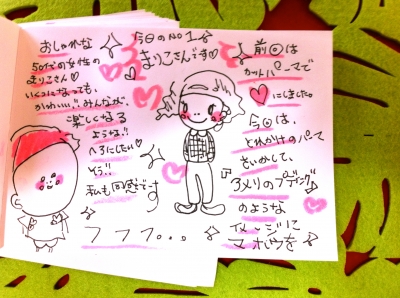 おしゃれな
50代の女性の
まりこさん♡
いくつになっても、
かわいい!!みんなが、
楽しくなる
ような!!
ヘアにしたい♡
そう!!
私も同感です
フフフ...
今日のNO1☆
まりこさんです♡
前回は
カットパーマで
♡にしました。
今回は、
とれかけのパーマ
をいかして、
アメリのプディング♪
のような
イメージに